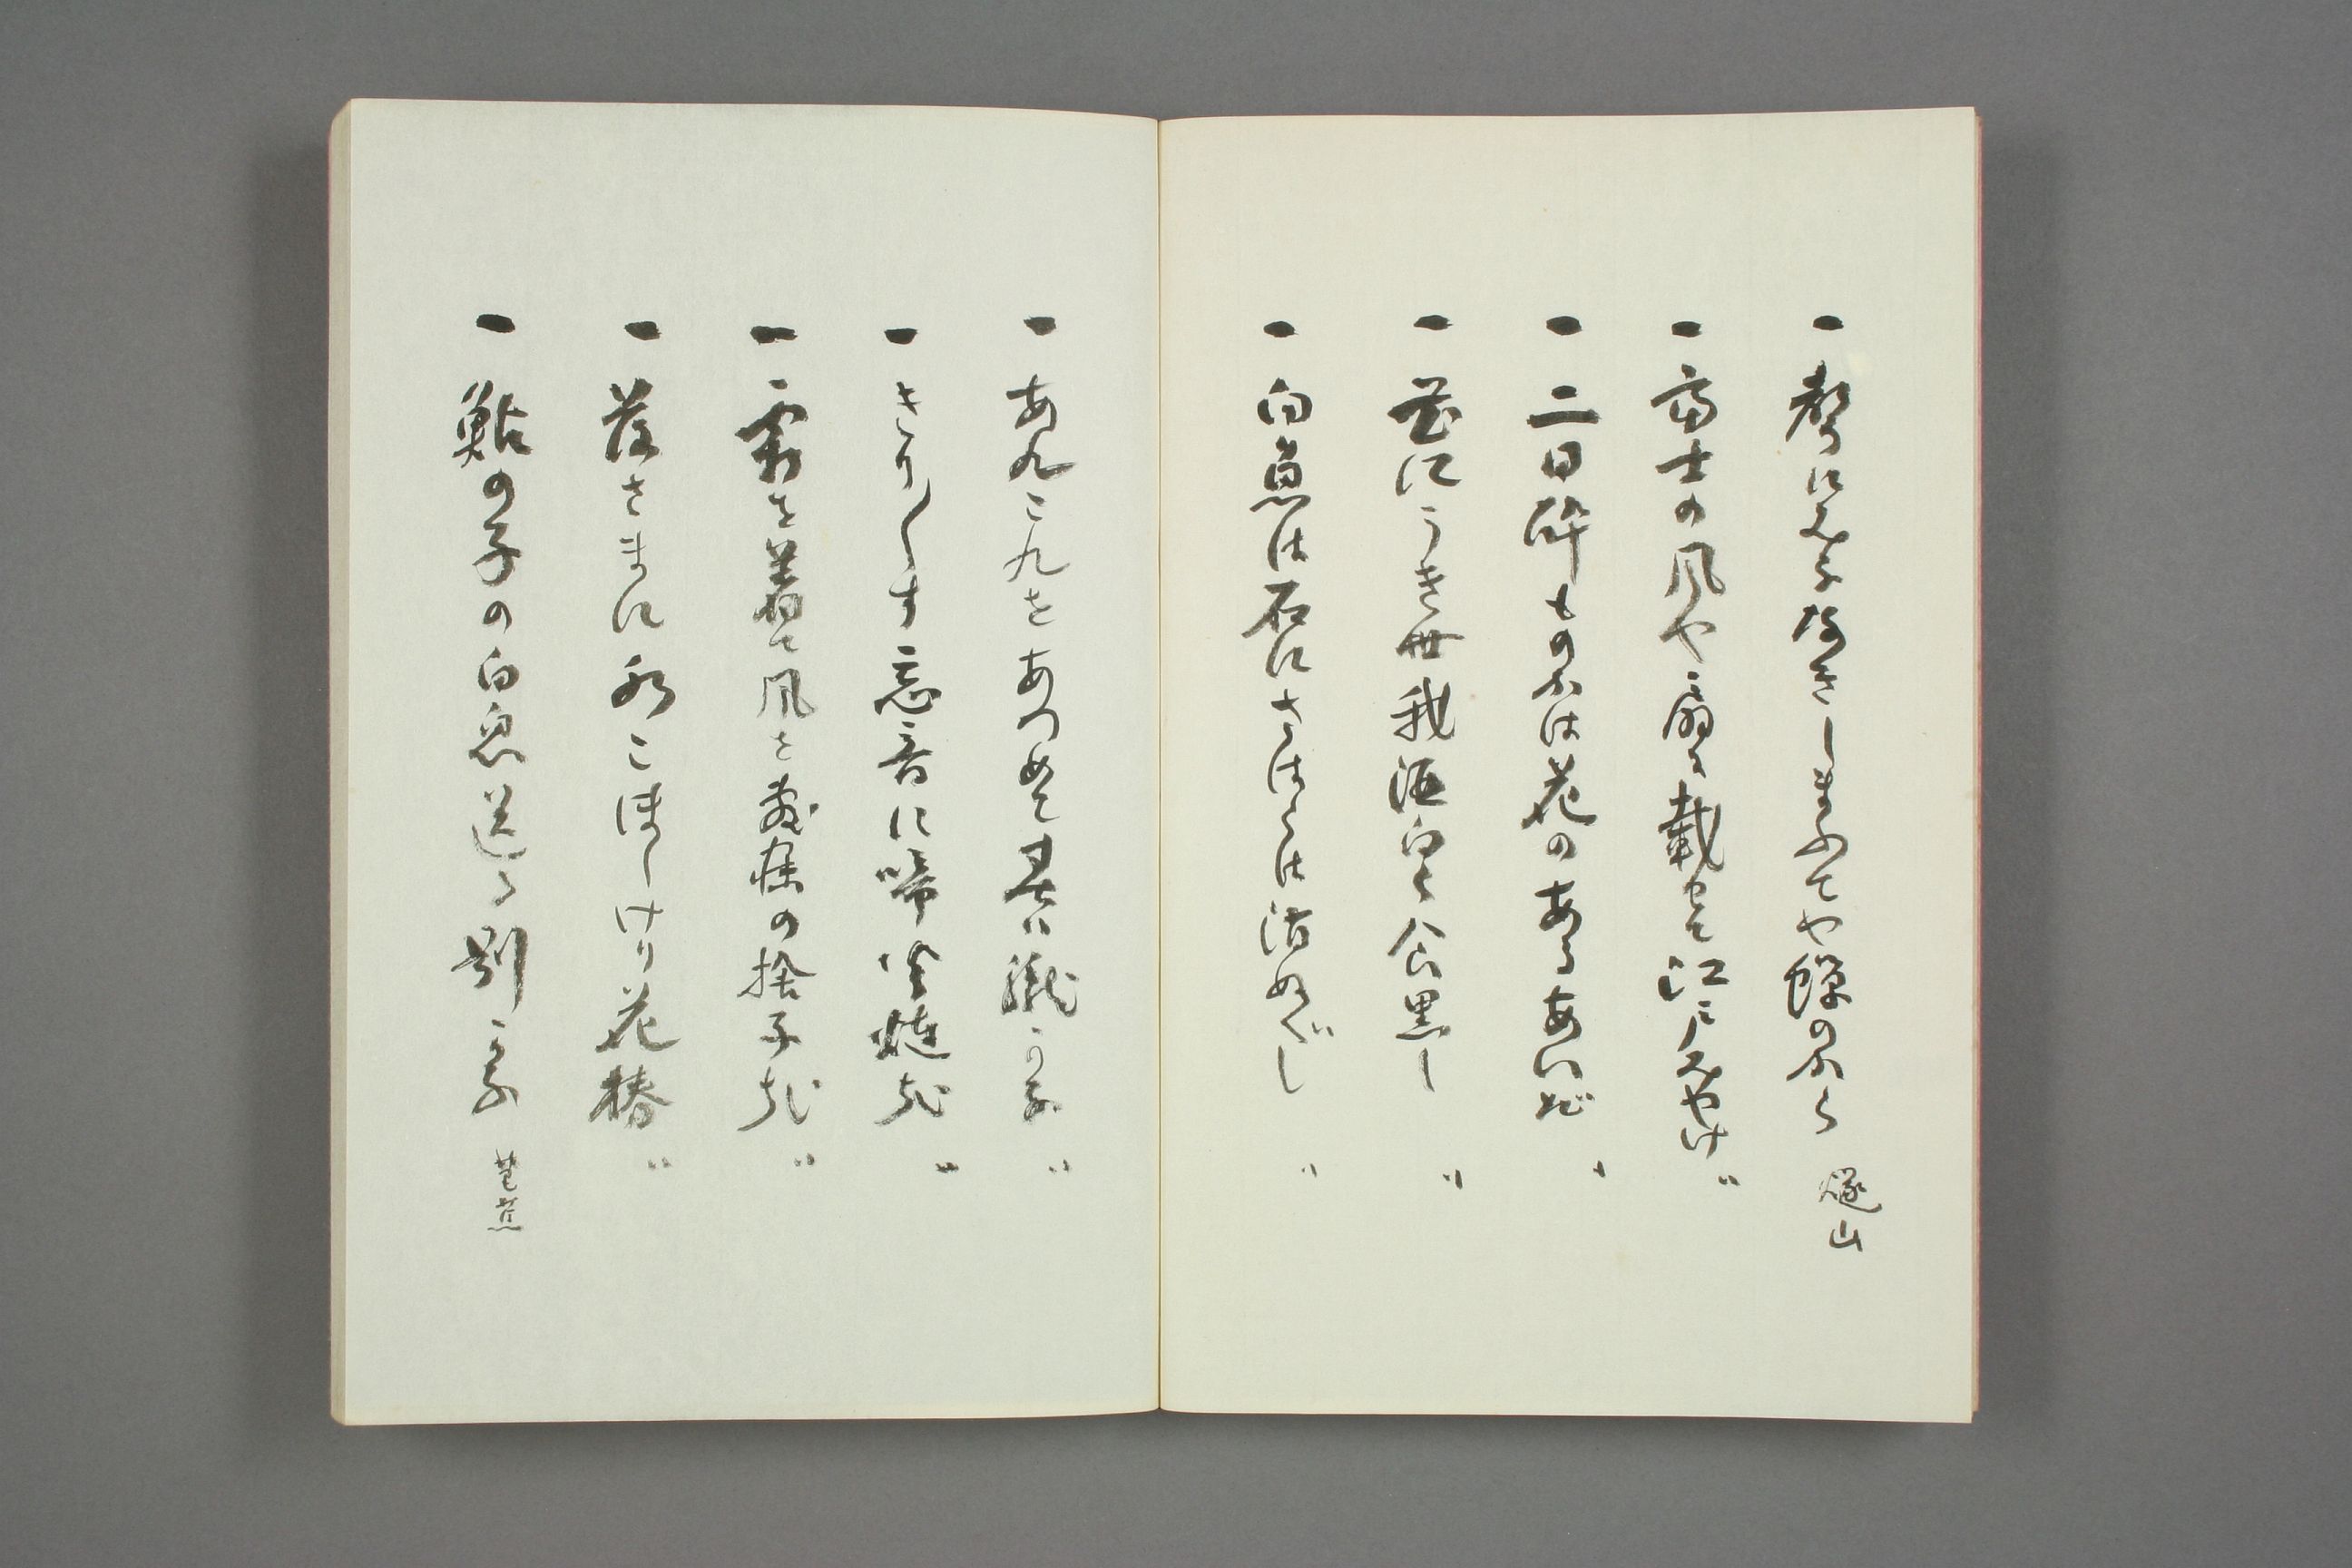 一 聲にみな啼きしまふてや蝉のから 燧山
一 富士の風や扇に載せて江戸みやけ 〃
一 二日酔ものかは花のあるあいだ 〃
一 花にうき世我酒白く食黒し 〃
一 白魚は石にさはらは消ぬべし 〃
一 あれこれをあつめて春は朧かな 〃
一 きり〱す忘音に啼火燵哉 〃
一 霜を着て風を敷寐の捨子哉 〃
一 落さまに水こほしけり花椿 〃
一 鮎の子の白魚送る別かな 芭蕉